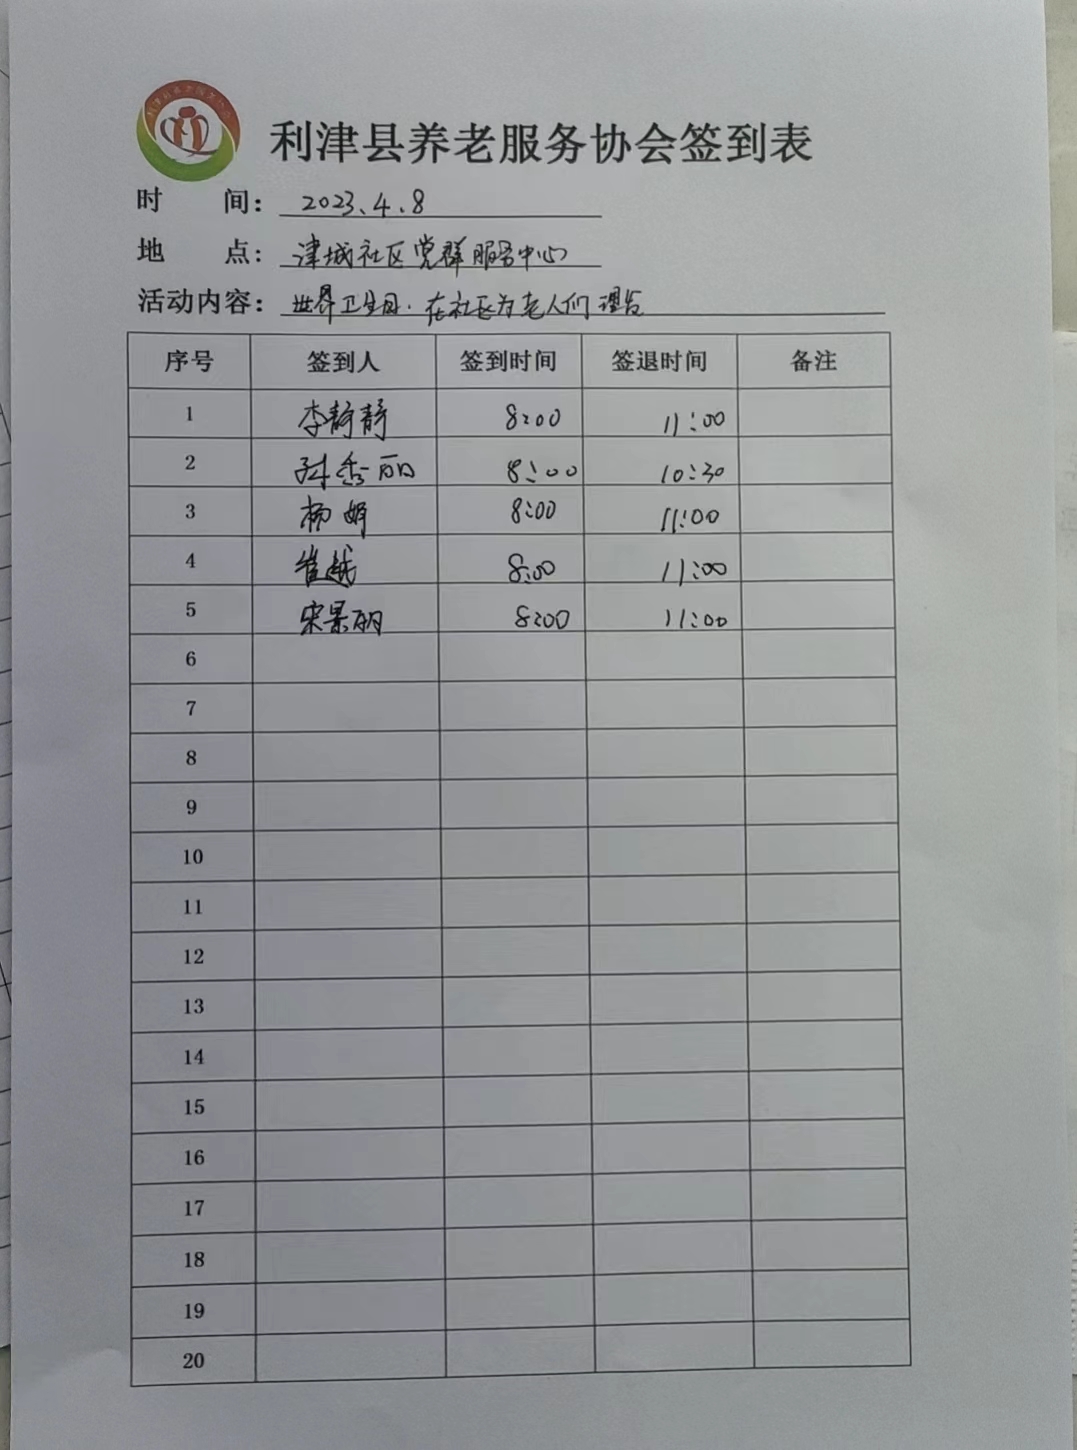 利津县养老服务协会签到表
时 间: 2023.4.8
地 点: 津城社区党群服务中心
活动内容: 世界卫生日.在社区为老人们理发
序号 签到人 签到时间 签退时间 备注
1 李静静 8:00 11:00
2 孙秀丽 8:00 10:30
3 杨娟 8:00 11:00
4 崔越 8:00 11:00
5 宋景丽 8:00 11:00
6
7
8
9
10
11
12
13
14
15
16
17
18
19
20